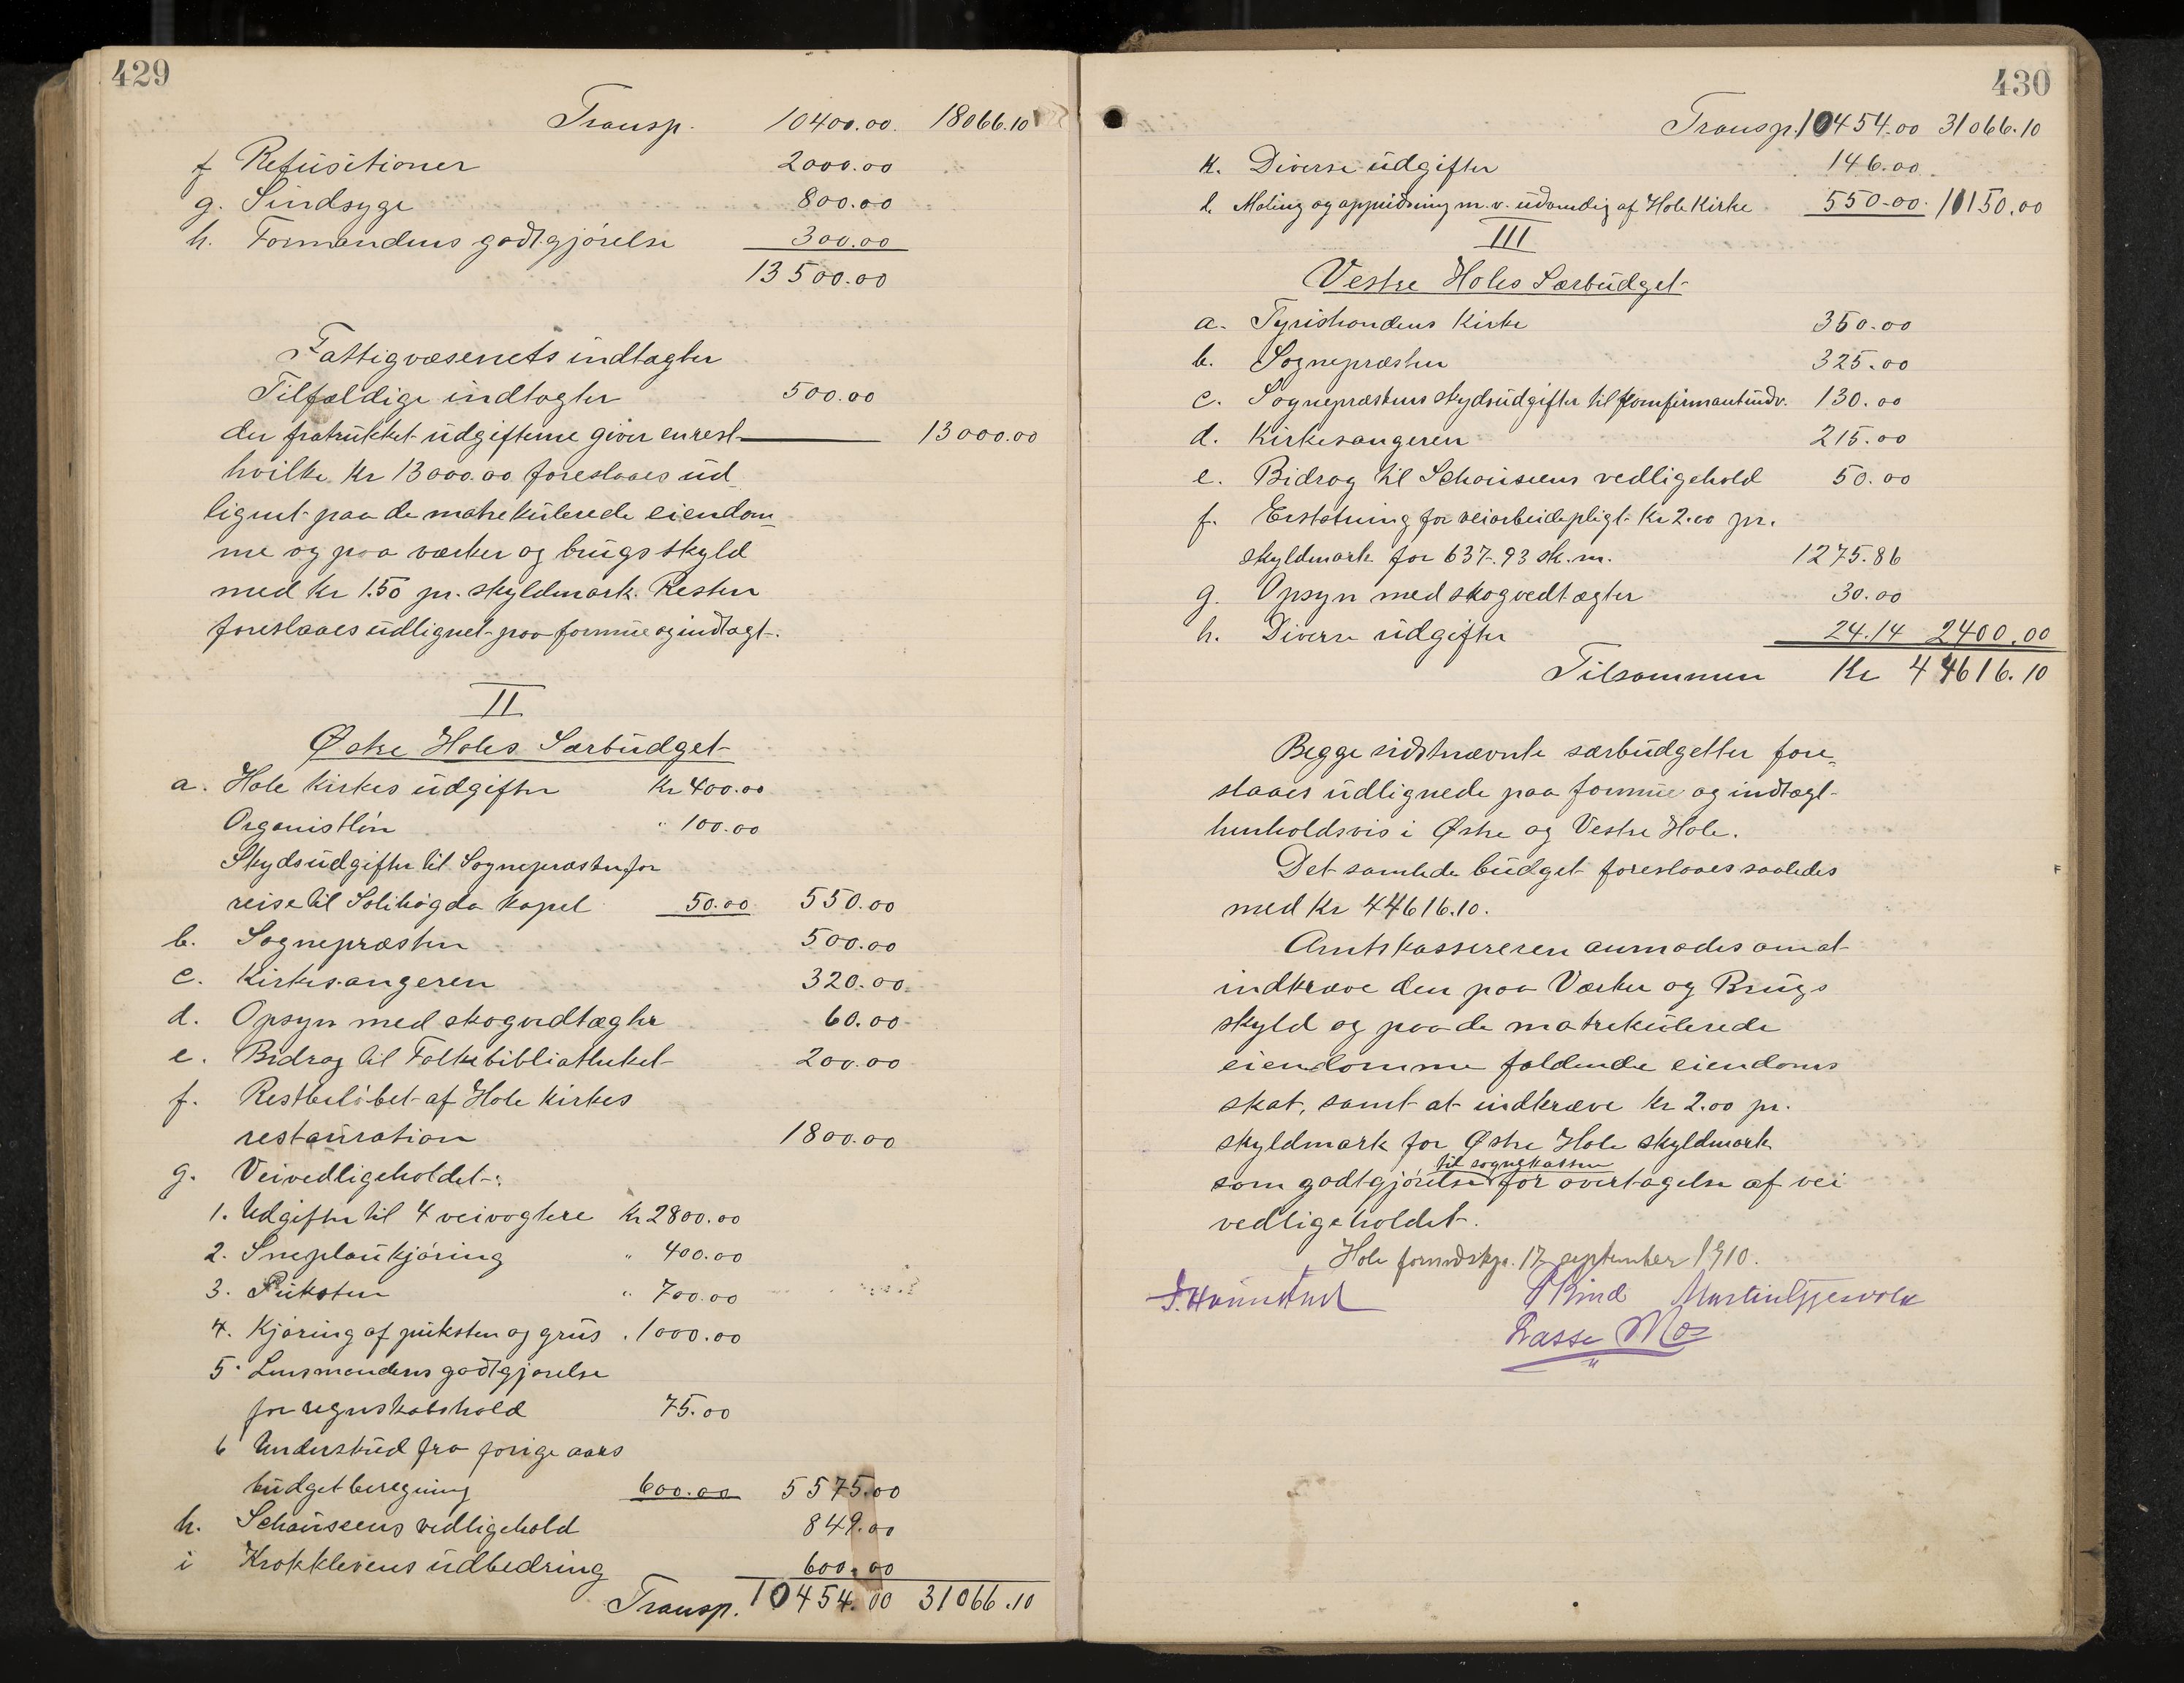 429
Transp. 10400.00. 18066.10
f Refusitioner 2000.00
g. Sindsyge 800.00
h. Formandens godtgjørelse 300.00
13500.00
Fattigvæsenets indtægter
Tilfældige indtægter 500.00
der fratrukket udgifterne giver en rest 13000.00
hvilke Kr 13000.00 foreslaaes ud-
lignet paa de matrekulerede eiendom-
me og paa værker og brugsskyld
med Kr 1.50 pr. skyldmark. Resten
foreslaaes udlignet paa formue og indtægt.
II
Østre Holes Særbudget
a. Hole kirkes udgifter Kr 400.00
Organistløn " 100.00
Skydsudgifter til Sognepræsten for
reise til Solihøgda kapel 50.00 550.00
b. Sognepræsten 500.00
c. Kirkesangeren 320.00
d. Opsyn med skogvedtægter 60.00
e. Bidrag til Folkebibliotheket 200.00
f. Restbeløbet af Hole kirkes
restauration 1800.00
g. Veivedligeholdet:
1. Udgifter til 4 veivogtere Kr 2800.00
2. Sneplaukjøring " 400.00
3. Puksten " 700.00
4. Kjøring af puksten og grus . 1000.00
5. Lensmandens godtgjørelse
for regnskabshold 75.00
6 Underskud fra forige aars
budgetberegning 600.00 5575.00
h. Schausseens vedligehold 849.00
i Krokklevens udbedring 600.00
Transp. 10454.00 31066.10
430
Transp. 10454.00 31066.10
k. Diverse udgifter 146.00
l. Maling og oppudsning m.v. udvendig af Hole Kirke 550.00 11150.00
III
Vestre Holes Særbudget
a. Tyristrandens Kirke 350.00
b. Sognepræsten 325.00
c. Sognepræstens skydsudgifter til konfirmantundv. 130.00
d. Kirkesangeren 215.00
e. Bidrag til Schauseens vedligehold 50.00
f. Erstatning for veiarbeidepligt Kr 2.00 pr.
skyldmark for 637.93 sk.m. 1275.86
g. Opsyn med skogvedtægter 30.00
h. Diverse udgifter 24.14 2400.00
Tilsammen Kr 44616.10
Begge sidstnævnte særbudgetter fore-
slaaes udlignede paa formue og indtægt
henholdsvis i Østre og Vestre Hole.
Det samlede budget foreslaaes saaledes
med Kr 44616.10.
Amtskassereren anmodes om at
indkræve den paa Værker og Brugs
skyld og paa de matrekulerede
eiendomme faldende eiendoms
skat, samt at indkræve Kr 2.00 pr.
skyldmark for Østre Hole skyldmark
til sognekassen
som godtgjørelse for overtagelse af vei
vedligeholdet.
Hole formdskp. 17 september 1910.
Martin Gjesvold
Lasse Moe